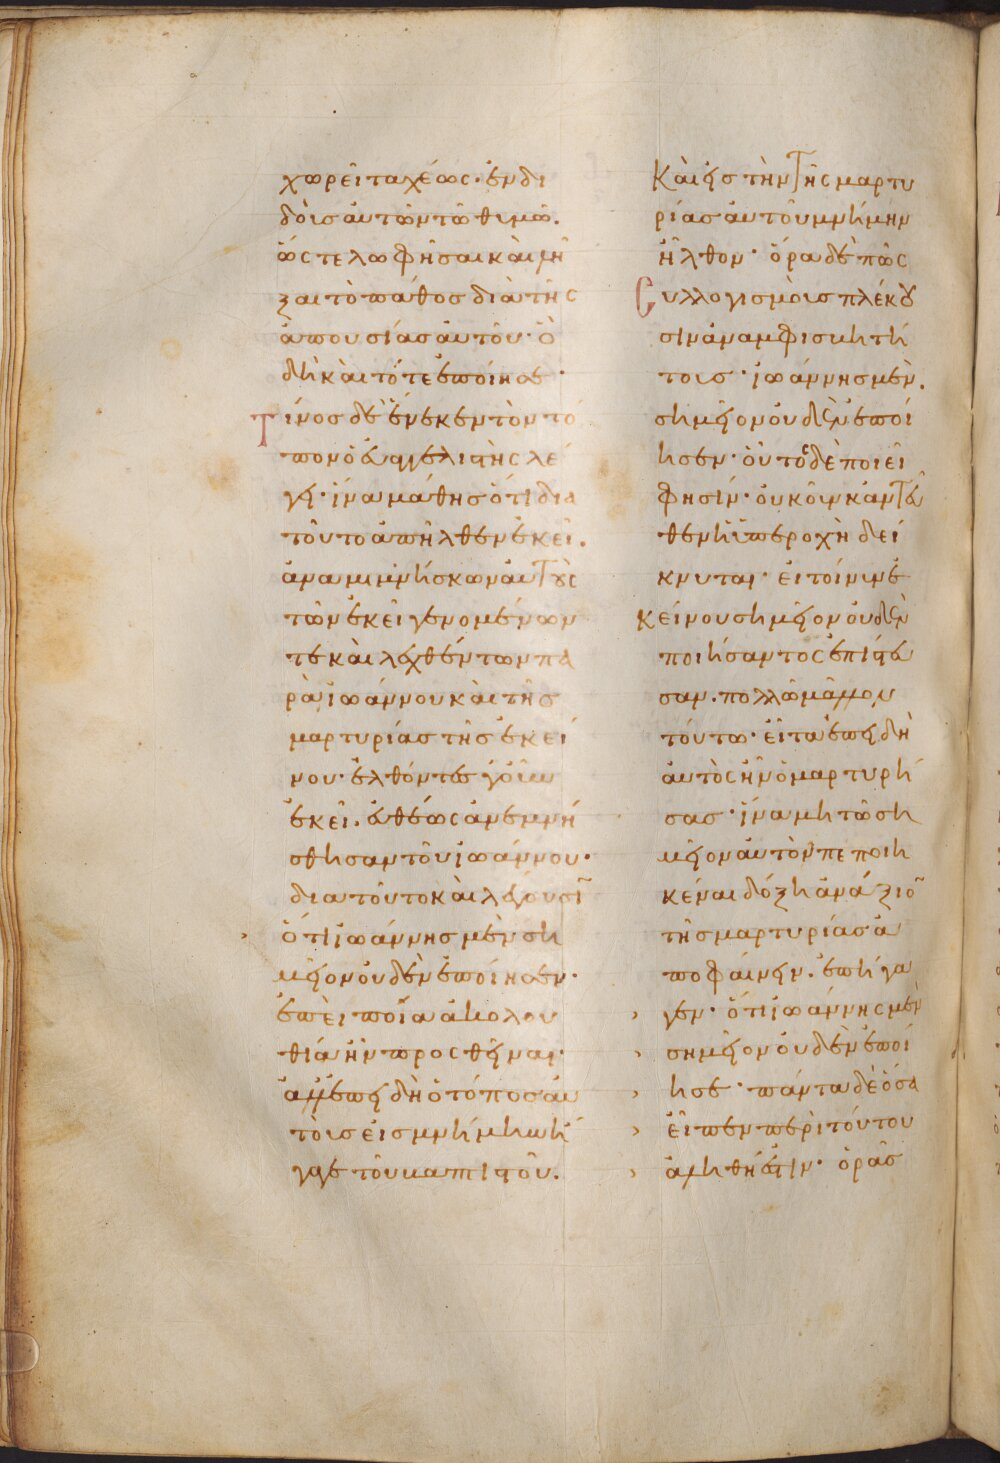 χωρεῖ ταχέως· ἐνδι
δοὺς αὐτῶν τῶ θυμῶ.
ὥστε λωφῆσαι καὶ λῆ
ξαι τὸ πάθος διὰ τῆς
ἀπουσίας αὐτοῦ· ὃ
δὴ καὶ τότε ἐποίησε·
Τίνος δὲ ἕνεκεν τὸν τό
πον ὁ εὐαγγελιστὴς λέ
γει· ἵνα μάθης ὅτι δια
τοῦτο ἀπῆλθεν ἐκεῖ.
ἀναμιμνήσκων αὐτοὺς
τῶν ἐκεῖ γενομένων
τε καὶ λεχθέντων πα
ρὰ ἰωάννου καὶ τῆς
μαρτυρίας τῆς ἐκεί
νου· ἐλθόντες γοῦν
ἐκεῖ. εὐθέως ἀνεμνή
σθησαν τοῦ ἰωάννου·
δια τοῦτο καὶ λέγουσιν
ὅτι ἰωάννης μὲν ση
μεῖον οὐδὲν ἐποίησεν·
ἐπεὶ ποία ἀκολου
θία ἦν προσθεῖναι·
ἀλλ' ἐπειδὴ ὁ τόπος αὐ
τοὺς εἰς μνήμην ἤ
γαγε τοῦ βαπτιστοῦ.
Καὶ εἰς τὴν τῆς μαρτυ
ρίας αὐτοῦ μνήμην
ἦλθον· ὅρα δὲ πῶς
συλλογισμοὺς πλέκου
σιν ἀναμφισβητή
τους· ἰωάννης μὲν.
σημεῖον οὐδὲν ἐποί
ησεν· οὗτος δὲ ποιεῖ
φησίν· οὐκοῦν κἀντεῦ
θεν ἡ ὑπεροχὴ δεί
κνυται· εἰ τοίνυν ἐ
κείνου σημεῖον οὐδὲν
ποιήσαντος ἐπίστευ
σαν. πολλῶ μᾶλλον
τούτω· εἶτα ἐπειδὴ
αὐτὸς ἦν ὁ μαρτυρή
σας· ἵνα μὴ τῶ ση
μεῖον αὐτὸν πεποιη
κέναι δόξη ἀνάξιον
τῆς μαρτυρίας ἀ
ποφαίνειν. ἐπήγα
γεν· ὅτι ἰωάννης μὲν
σημεῖον οὐδὲν ἐποί
ησε· πάντα δὲ ὅσα
εἶπεν περὶ τούτου
ἀληθῆ ἐστιν· ὁρᾶς